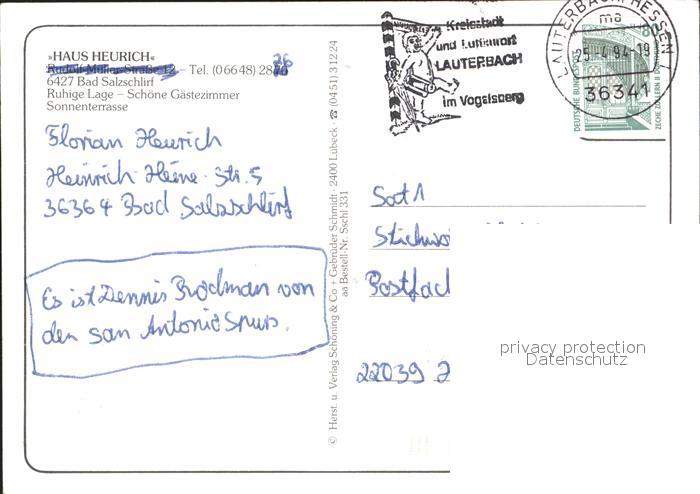 »HAUS HEURICH«
Rudolf-Müller-Straße 12 – Tel. (06648) 2876
6427 Bad Salzschlirf
Ruhige Lage – Schöne Gästezimmer
Sonnenterrasse
Florian Heurich
Heinrich-Heine-Str. 5
36364 Bad Salzschlirf
Es ist Dennis Rodman von
den San Antonio Spurs.
© Herst. u. Verlag Schöning & Co + Gebrüder Schmidt · 2400 Lübeck · ☎ (0451) 31224
aa Bestell-Nr. Sschl 331
Kreisstadt
und Luftkurort
LAUTERBACH
im Vogelsberg
LAUTERBACH, HESSEN 1
ma
25.-4.94-19
36341
80
DEUTSCHE BUNDESPOST
ZECHE ZOLLERN II
Sat 1
Stichwo
Postfach
22039 H
privacy protection
Datenschutz